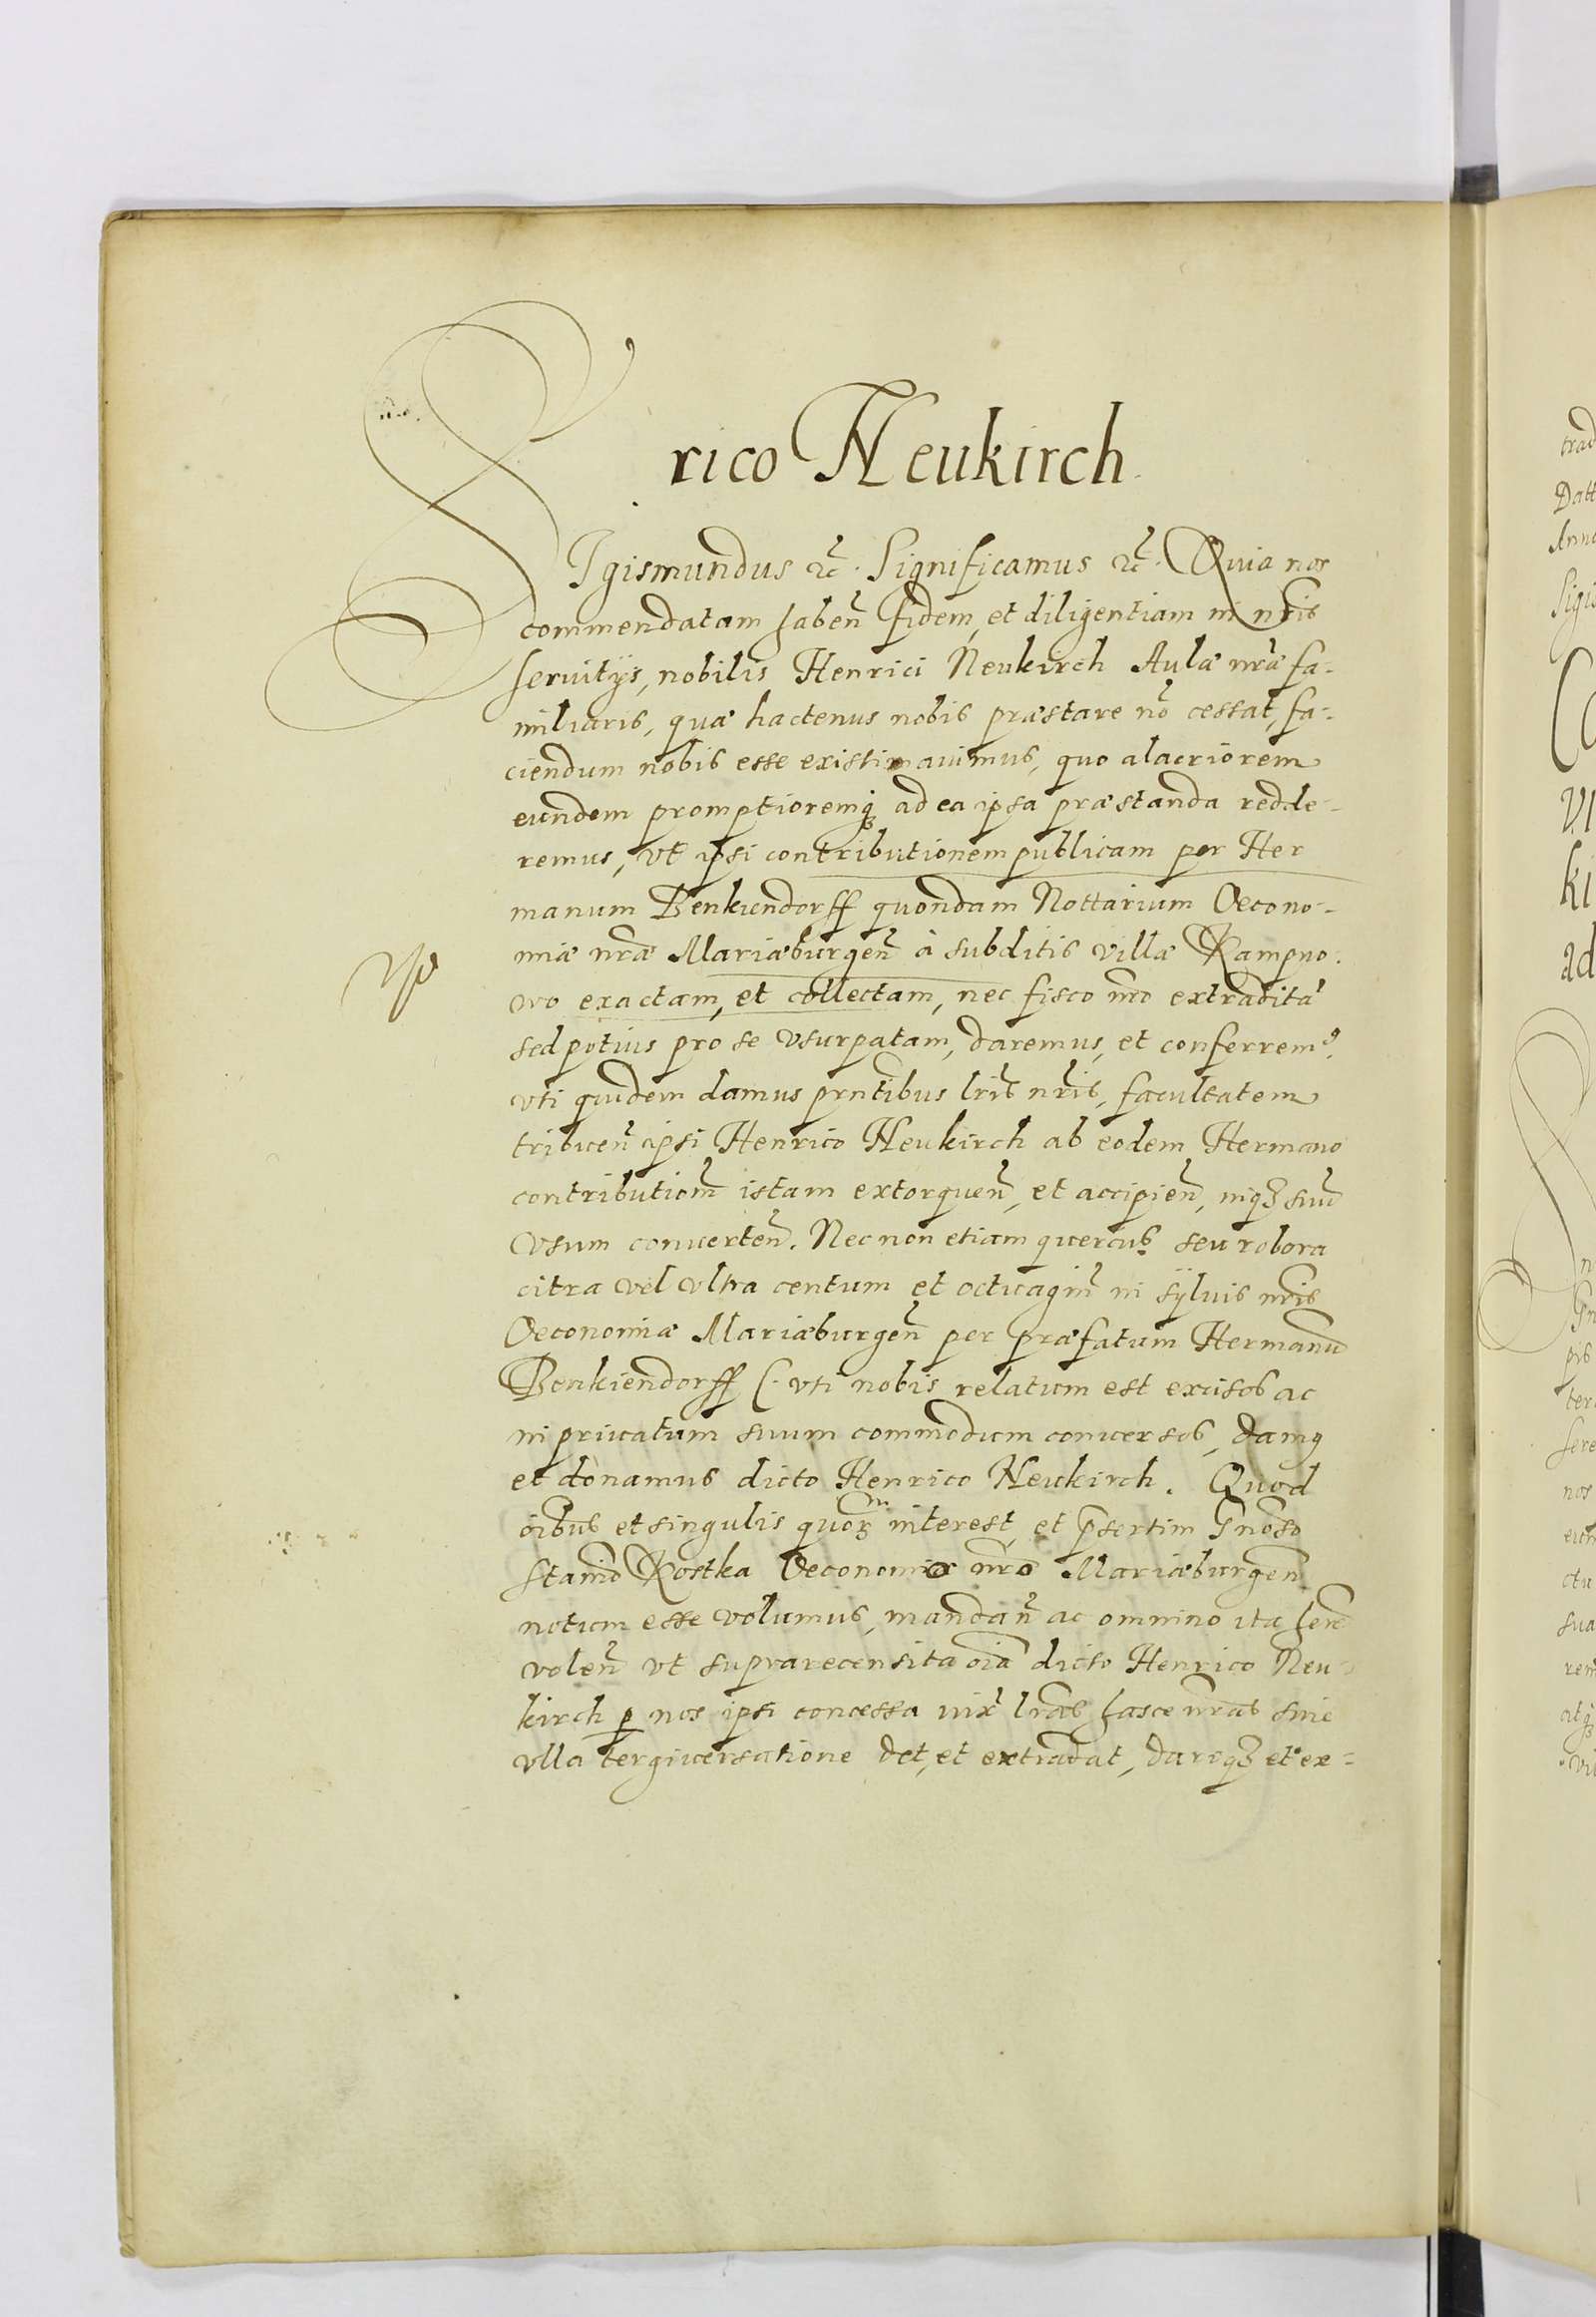 rico Neukirch
SIgismundus etc. Significamus etc. Quia nos
commendatam haben̄ fidem, et diligentiam in nr̄is
seruitÿs, nobilis Henrici Neukirch Aulæ nr̄æ fa-
miliaris, quæ hactenus nobis præstare nō cessat, fa-
ciendum nobis esse existimauimus, quo alacriorem
eundem promptioremq₃ ad ea ipsa præstanda redde-
remus, vt ipsi contributionem publicam per Her
manum Benkiendorff quondam Nottarium Oecono-
miæ nr̄æ Mariæburgen̄ à subditis villæ Kampno-
wo exactam, et collectam, nec fisco nr̄o extraditā
sed potius pro se vsurpatam, daremus, et conferremꝰ,
vti quidem damus pr̄ntibus lr̄is nr̄is, facultatem
tribuen̄ ipsi Henrico Neukirch ab eodem Hermano
contributionē istam extorquen̄, et accipien̄, inq₃ suū
vsum conuerten̄. Nec non etiam quercus seu robora
citra vel vltra centum et octuagin̄ in sÿluis nr̄is
Oeconomiæ Mariæburgen̄ per præfatum Hermanū
Benkiendorff (: vti nobis relatum est excisos ac
in priuatum suum commodum conuersos, damꝰ
et donamus dicto Henrico Neukirch. Quod
oībus et singulis quoꝝ interest, et p̄sertim Gnoso
Stanīo Kostka Oeconomo nr̄o Mariæburgen̄
notum esse volumus, mandan̄ ac omnino ita herē
volen̄ vt suprarecensita oīa dicto Henrico Neu-
kirch ꝑ nos ipsi concessa iux̄ lr̄as hasce nr̄as sine
vlla tergiuersatione det, et extradat, dariq₃ et ex-